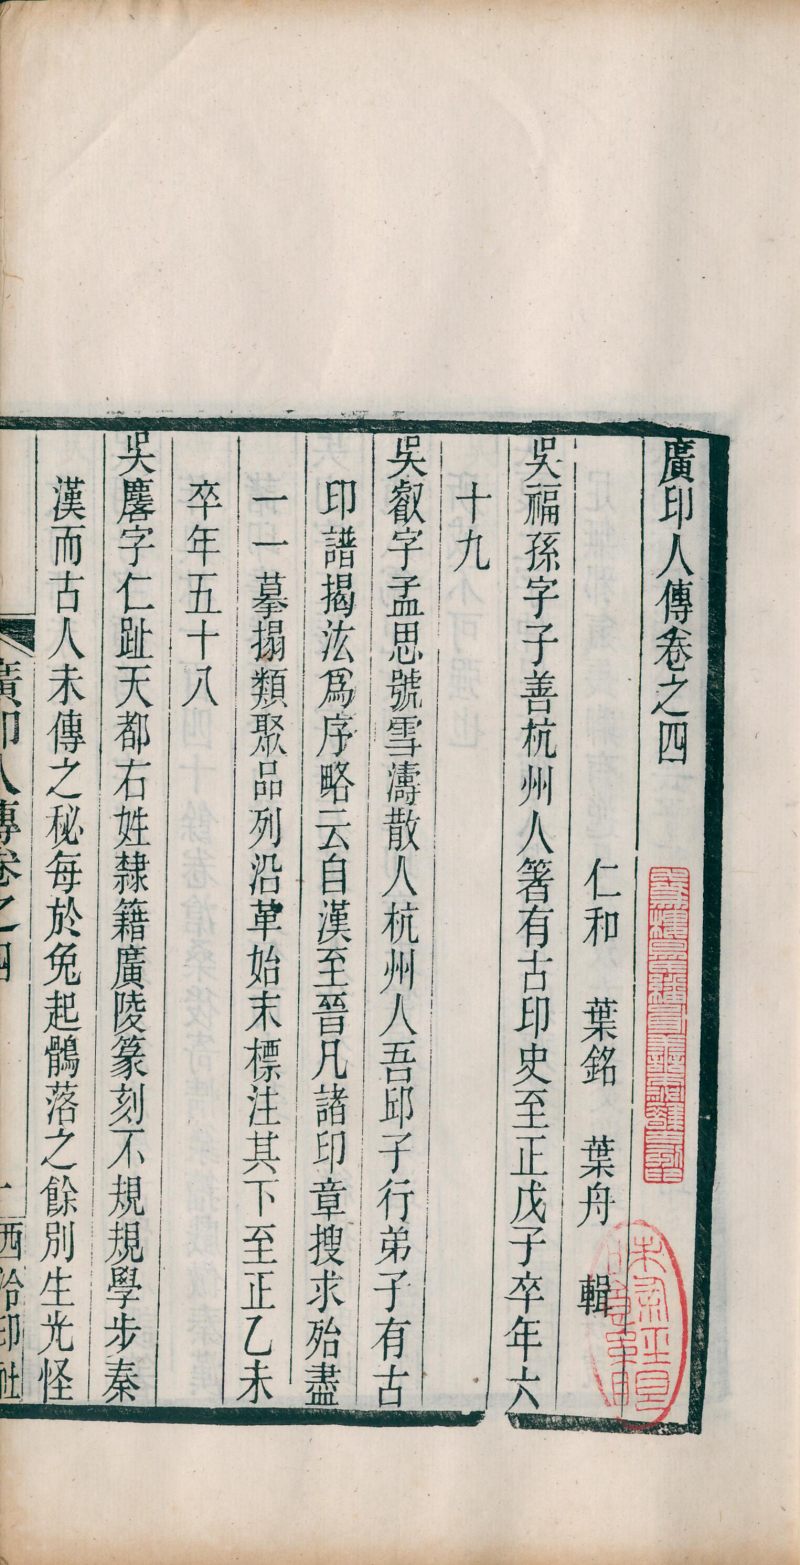 廣印人傳卷之四
仁和 葉銘 葉舟 輯
吳福孫字子善杭州人箸有古印史至正戊子卒年六
十九
吳叡字孟思號雪濤散人杭州人吾邱子行弟子有古
印譜揭汯爲序略云自漢至晉凡諸印章搜求殆盡
一一摹搨類聚品列沿革始末標注其下至正乙未
卒年五十八
吳麐字仁趾天都右姓隸籍廣陵篆刻不規規學步秦
漢而古人未傳之秘每於兔起鶻落之餘別生光怪
廣印人傳卷之四 一 西泠印社